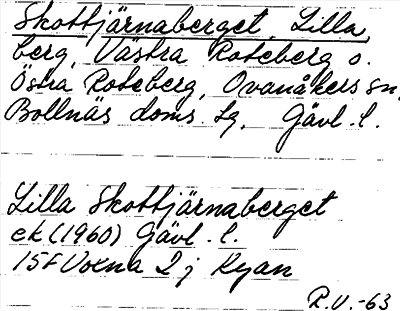 Skottjärnaberget, Lilla,
berg, Västra Roteberg o.
Östra Roteberg, Ovanåkers sn,
Bollnäs doms. tg, Gävl. l.
Lilla Skottjärnaberget
ek (1960) Gävl. l.
15F Voxna 2j Ryan
R.V.-63